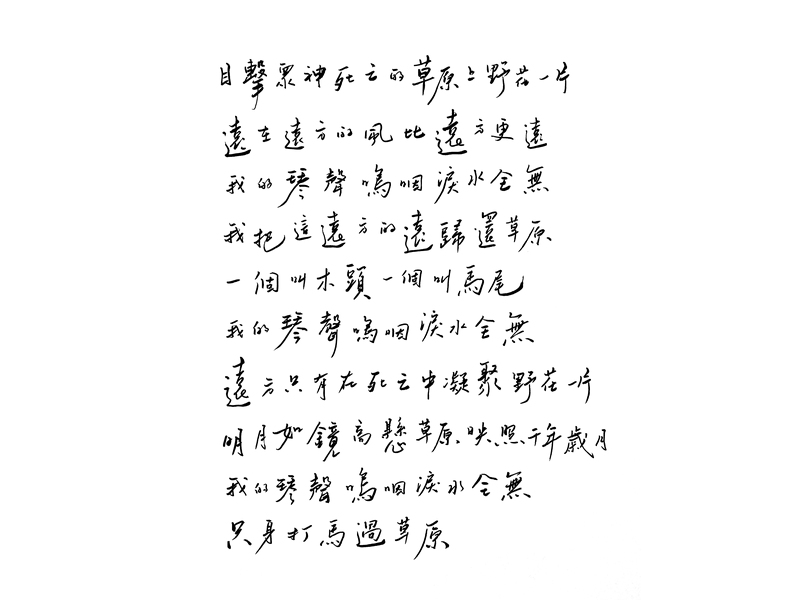 目擊眾神死亡的草原上野花一片
遠在遠方的風比遠方更遠
我的琴聲嗚咽淚水全無
我把這遠方的遠歸還草原
一個叫木頭一個叫馬尾
我的琴聲嗚咽淚水全無
遠方只有在死亡中凝聚野花一片
明月如鏡高懸草原映照千年歲月
我的琴聲嗚咽淚水全無
只身打馬過草原